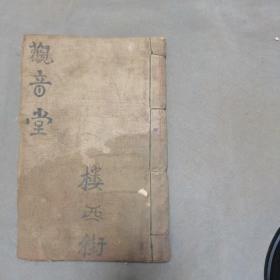 觀音堂
樓西街